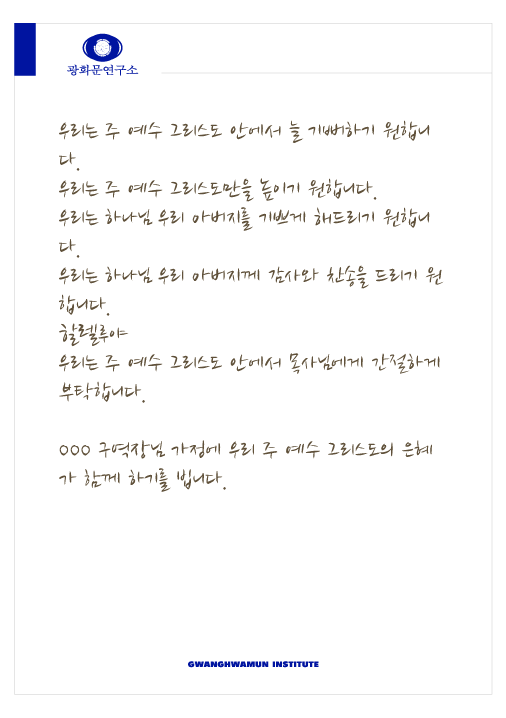 광화문연구소
우리는 주 예수 그리스도 안에서 늘 기뻐하기 원합니
다.
우리는 주 예수 그리스도만을 높이기 원합니다.
우리는 하나님 우리 아버지를 기쁘게 해드리기 원합니
다.
우리는 하나님 우리 아버지께 감사와 찬송을 드리기 원
합니다.
할렐루야
우리는 주 예수 그리스도 안에서 목사님에게 간절하게
부탁합니다.
OOO 구역장님 가정에 우리 주 예수 그리스도의 은혜
가 함께 하기를 빕니다.
GWANGHWAMUN INSTITUTE